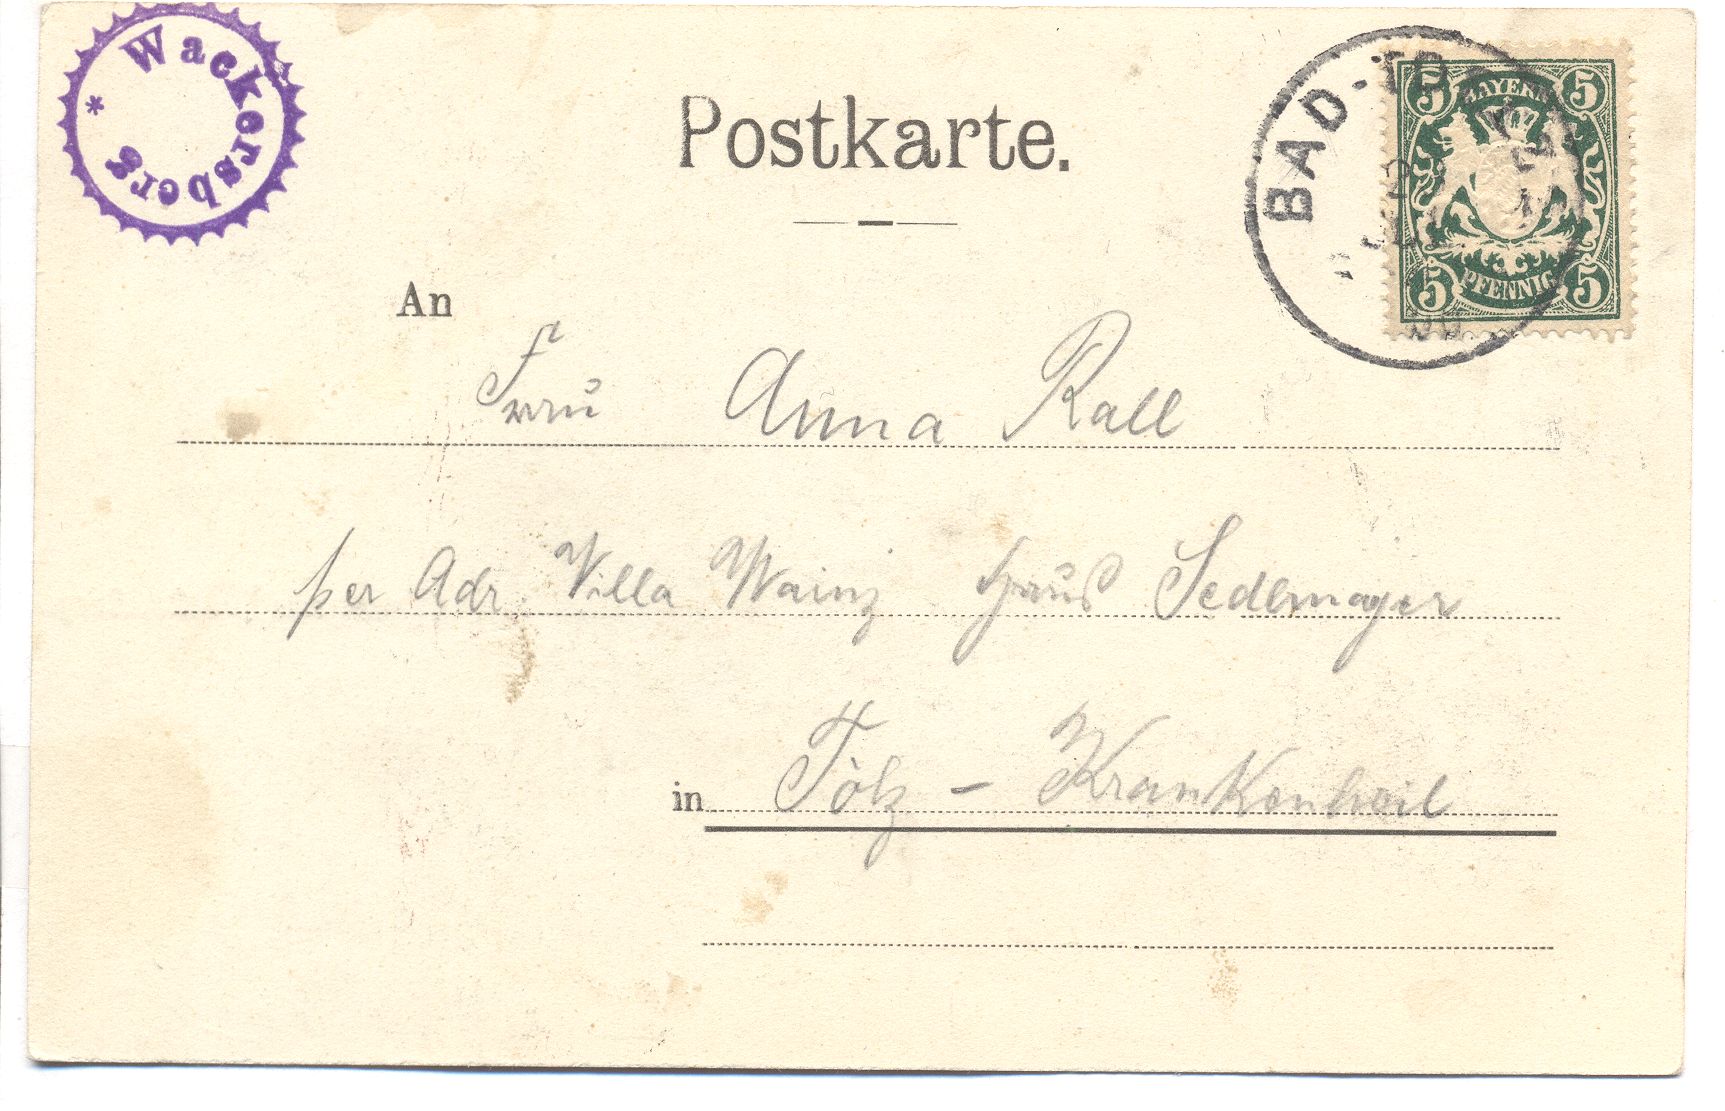 * Wackersberg
Postkarte.
BAD-TÖ
5 5
BAYERN
PFENNIG
5 5
An
Frau Anna Rall
per Adr. Villa Mainz Haus Sedlmayer
in Tölz - Krankenheil